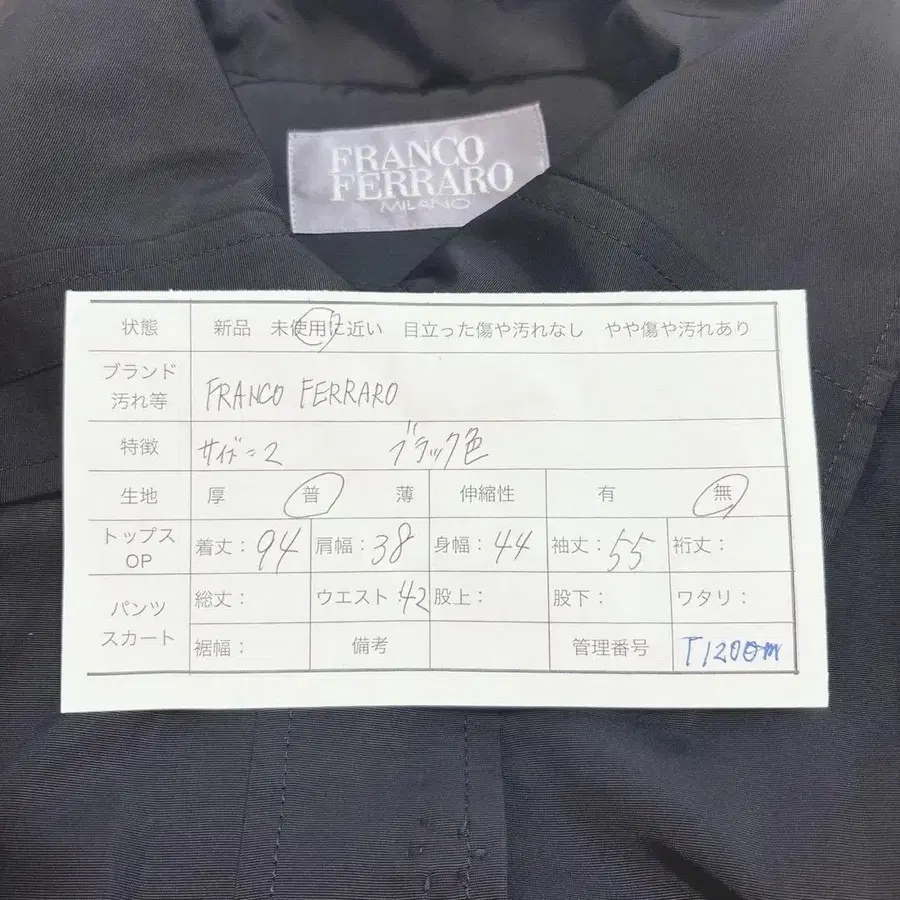 FRANCO
FERRARO
MILANO
状態 新品 未使用に近い 目立った傷や汚れなし やや傷や汚れあり
ブランド
汚れ等 FRANCO FERRARO
特徴 サイズ=2 ブラック色
生地 厚 普 薄 伸縮性 有 無
トップス
OP 着丈:94 肩幅:38 身幅:44 袖丈:55 裄丈:
パンツ
スカート
総丈: ウエスト:42 股上: 股下: ワタリ:
裾幅: 備考 管理番号 T1200m